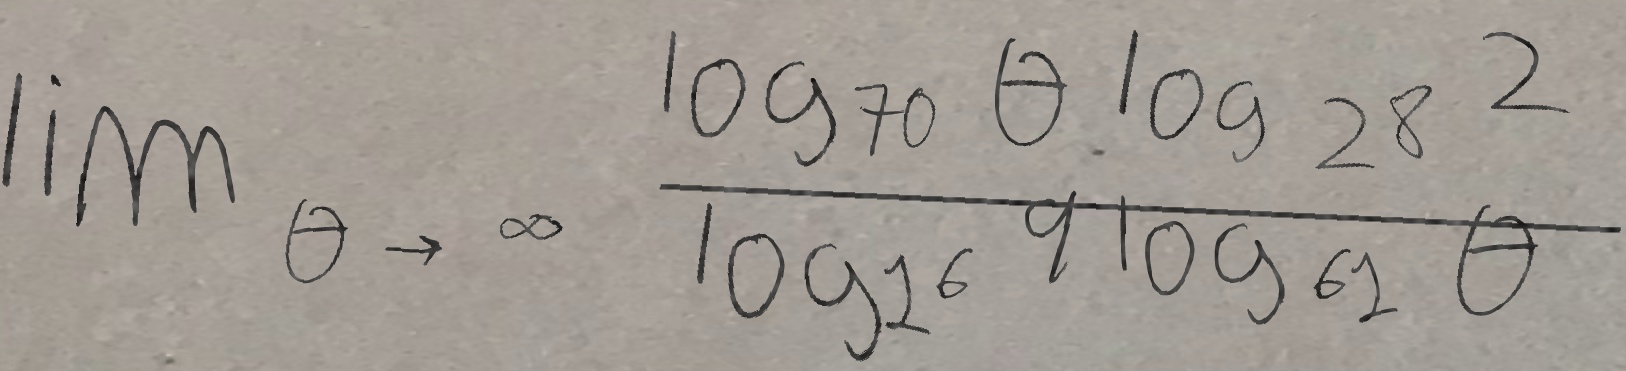 lim θ → ∞ \frac{log_{70} θ log_{28} 2}{log_{16} 9 log_{61} θ}